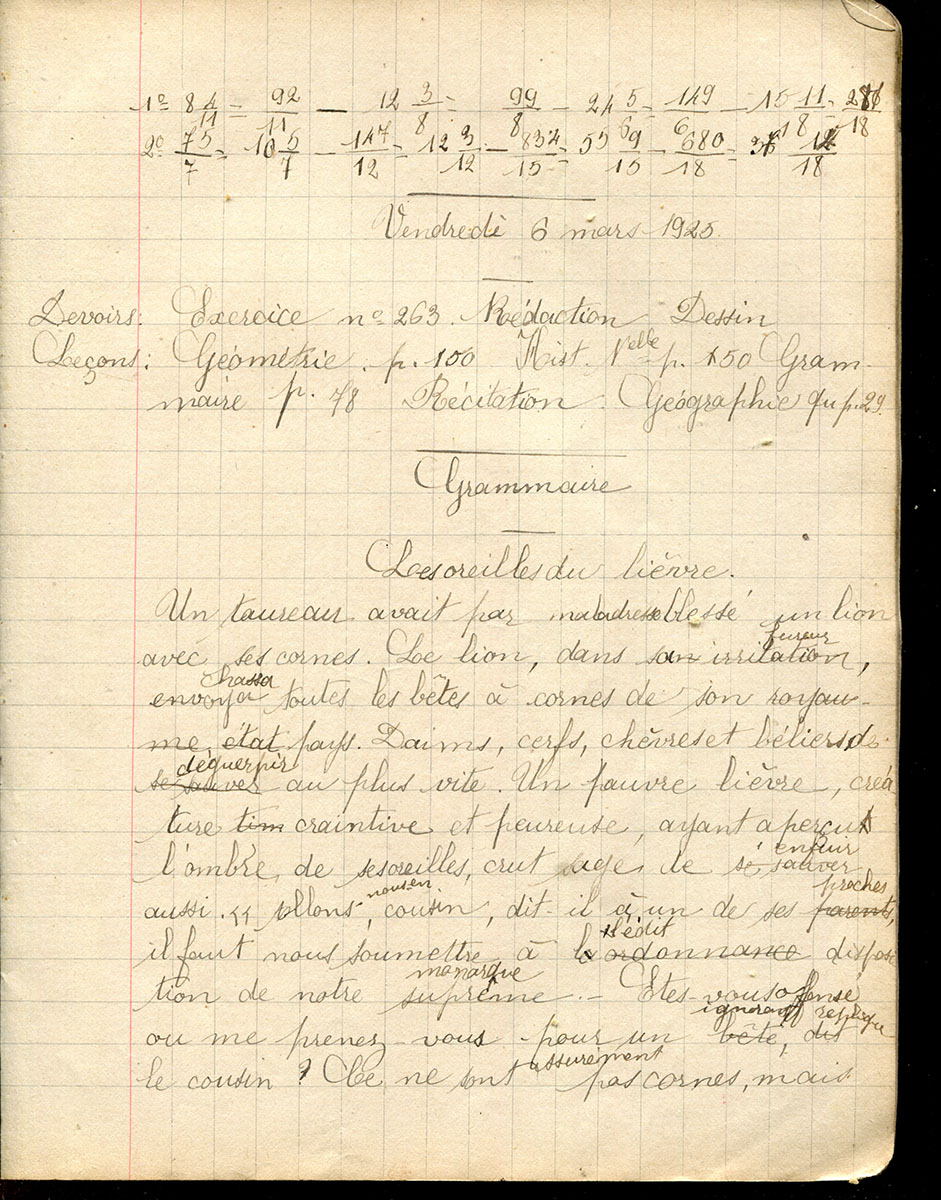 1º 8 4/11 = 92/11 — 12 3/8 = 99/8 — 24 5/6 = 149/6 — 15 11/18 = 281/18
2º 75/7 = 10 5/7 — 147/12 = 12 3/12 — 834/15 = 55 9/15 — 680/18 = 37 12/18
Vendredi 6 mars 1925.
Devoirs: Exercice nº 263. Rédaction Dessin
Leçons: Géométrie. p. 100 Hist. Nelle p. 150 Gram-
maire p. 78 Récitation. Géographie qu p. 29.
Grammaire
Les oreilles du lièvre.
Un taureau avait par maladresse blessé un lion
fureur
avec ses cornes. Le lion, dans son irritation,
chassa
envoya toutes les bêtes à cornes de son royau-
me, état pays. Daims, cerfs, chèvres et béliers de
déguerpir
se sauver au plus vite. Un pauvre lièvre, créa-
ture tim craintive et peureuse, ayant aperçut
enfuir
l'ombre de ses oreilles, crut sage de se sauver
nous en proches
aussi. << Allons, cousin, dit-il à un de ses parents,
l'édit
il faut nous soumettre à l'ordonnance disposi
monarque
tion de notre suprême. - Etes-vous offensé
ignorant replique
ou me prenez-vous pour un bête, dit
assurement
le cousin ? Ce ne sont pas cornes, mais